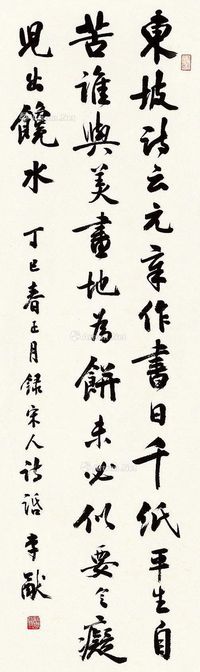 東坡詩云元章作書日千紙平生自
苦誰與美畫地為餅未必似要令癡
兒出饞水 丁巳春正月録宋人詩話 李猷